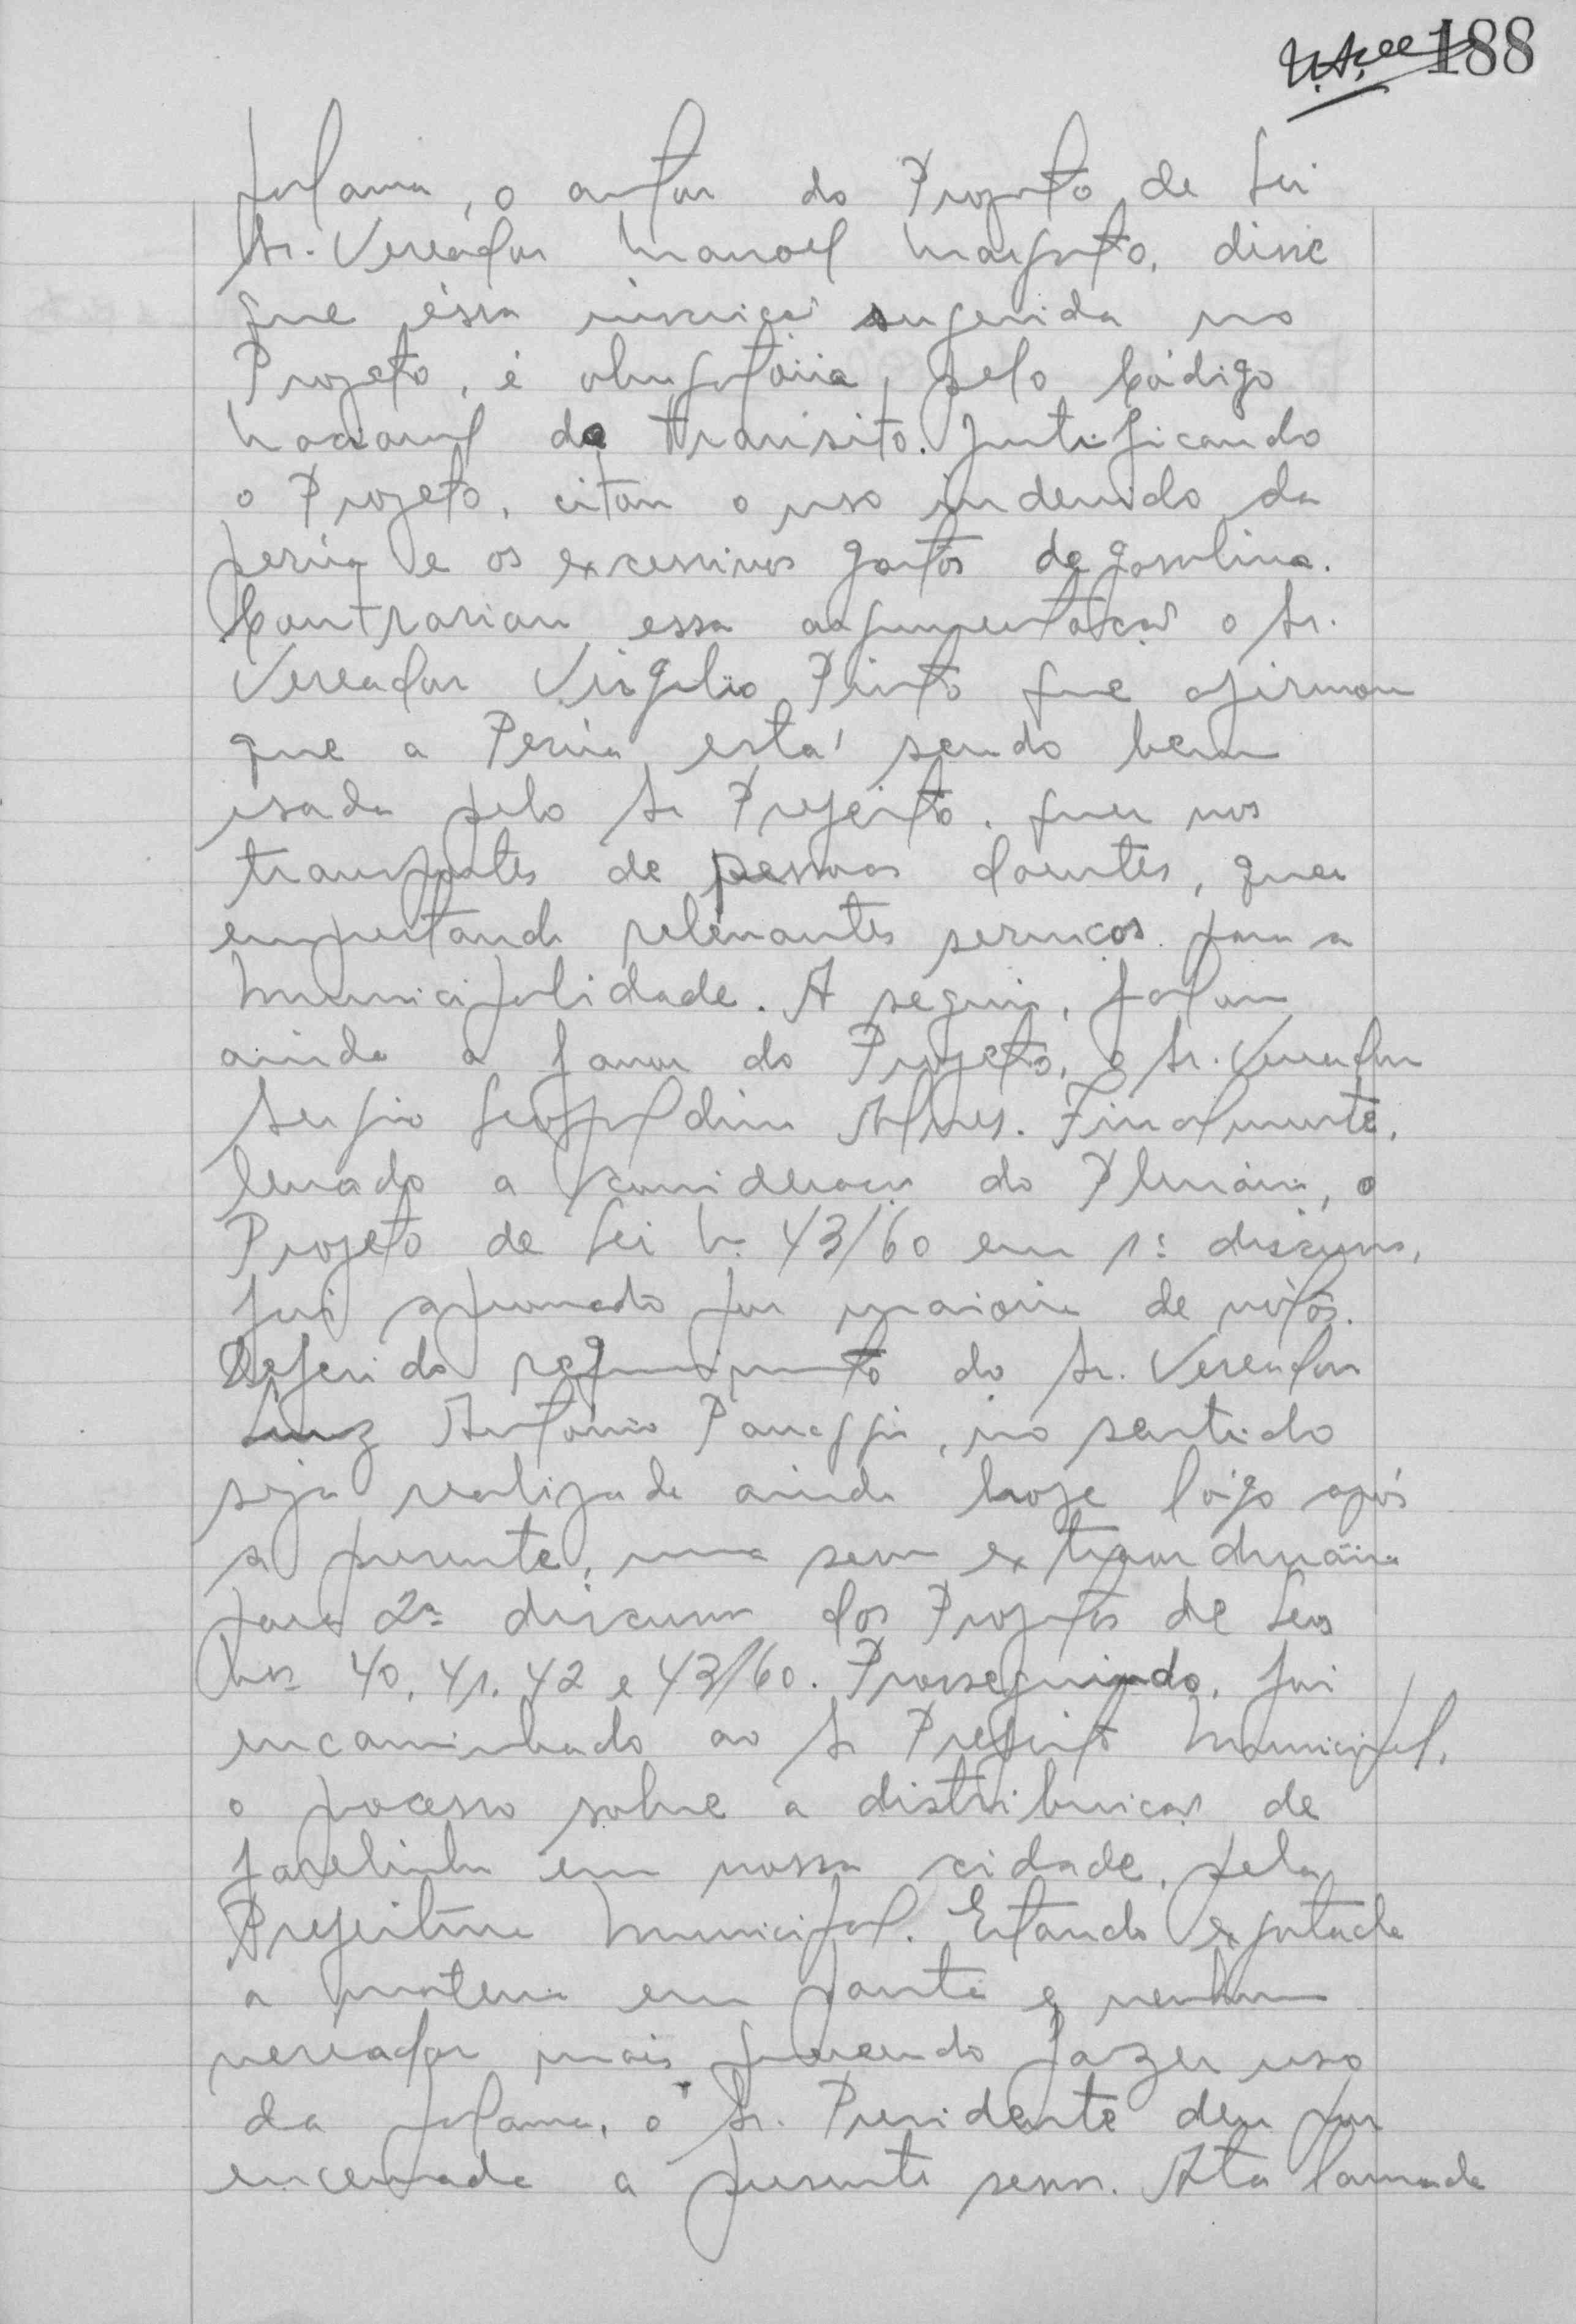 188
palavra, o autor do Projeto de Lei
Sr. Vereador Manoel, disse
que éssa inscrição sugerida no
Projeto, é obrigatória, pelo Código
Nacional de Transito. Justificando
o Projeto, citou o uso indevido da
perúa e os excessivos gastos de gasolina.
Contrariou essa argumentação o Sr.
Vereador Virgilio Pinto que afirmou
que a Perúa está sendo bem
usada pelo Sr Prefeito, quer nos
transportes de pessoas doentes, quer
emprestando relevantes serviços para a
Municipalidade. A seguir, falou
ainda a favor do Projeto, o Sr. Vereador
Sergio Leopoldino Alves. Finalmente,
levado a consideração do Plenário, o
Projeto de Lei N. 43/60 em 1ª discussão,
foi aprovado por maioria de vótos.
Deferido requerimento do Sr. Vereador
Luiz Antônio, no sentido
seja realizada ainda hoje lógo após
a presente, uma sessão extraordinária
para 2ª discussão dos Projetos de Leis
Nos 40, 41, 42 e 43/60. Prosseguindo, foi
encaminhado ao Sr Prefeito Municipal,
o processo sobre a distribuição de
farelinho em nossa cidade, pela
Prefeitura Municipal. Estando esgotada
a materia em pauta e nenhum
vereador mais querendo fazer uso
da palavra, o Sr. Presidente deu por
encerrada a presente sessão. Ata lavrada